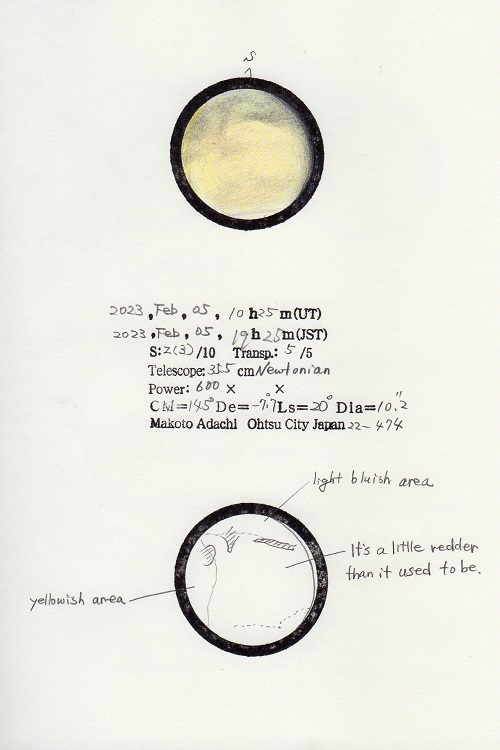 S
2023, Feb, 05, 10 h 25 m (UT)
2023, Feb, 05, 19 h 25 m (JST)
S: 2(3) /10 Transp.: 5 /5
Telescope: 355 cm Newtonian
Power: 600 × ×
CM=145° De=-7.7° Ls=20° Dia=10.2"
Makoto Adachi Ohtsu City Japan 22-474
light bluish area
It's a little redder
than it used to be.
yellowish area